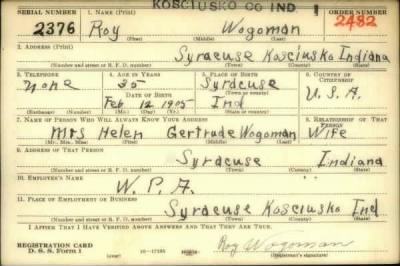 KOSCIUSKO CO IND. 1
SERIAL NUMBER 1. NAME (Print) ORDER NUMBER
2376 Roy Wogoman 2482
(First) (Middle) (Last)
2. ADDRESS (Print)
Syracuse Kosciusko Indiana
(Number and street or R. F. D. number) (Town) (County) (State)
3. TELEPHONE 4. AGE IN YEARS 5. PLACE OF BIRTH 6. COUNTRY OF CITIZENSHIP
None 35 Syracuse
DATE OF BIRTH (Town or county)
Feb 12 1905 Ind U.S.A.
(Exchange) (Number) (Mo.) (Day) (Yr.) (State or country)
7. NAME OF PERSON WHO WILL ALWAYS KNOW YOUR ADDRESS 8. RELATIONSHIP OF THAT PERSON
Mrs Helen Gertrude Wogoman Wife
(Mr., Mrs., Miss) (First) (Middle) (Last)
9. ADDRESS OF THAT PERSON
Syracuse Indiana
(Number and street or R. F. D. number) (Town) (County) (State)
10. EMPLOYER'S NAME
W.P.A.
11. PLACE OF EMPLOYMENT OR BUSINESS
Syracuse Kosciusko Ind
(Number and street or R. F. D. number) (Town) (County) (State)
I AFFIRM THAT I HAVE VERIFIED ABOVE ANSWERS AND THAT THEY ARE TRUE.
REGISTRATION CARD
D. S. S. Form 1 16-17105 Roy Wogoman
(Registrant's signature)